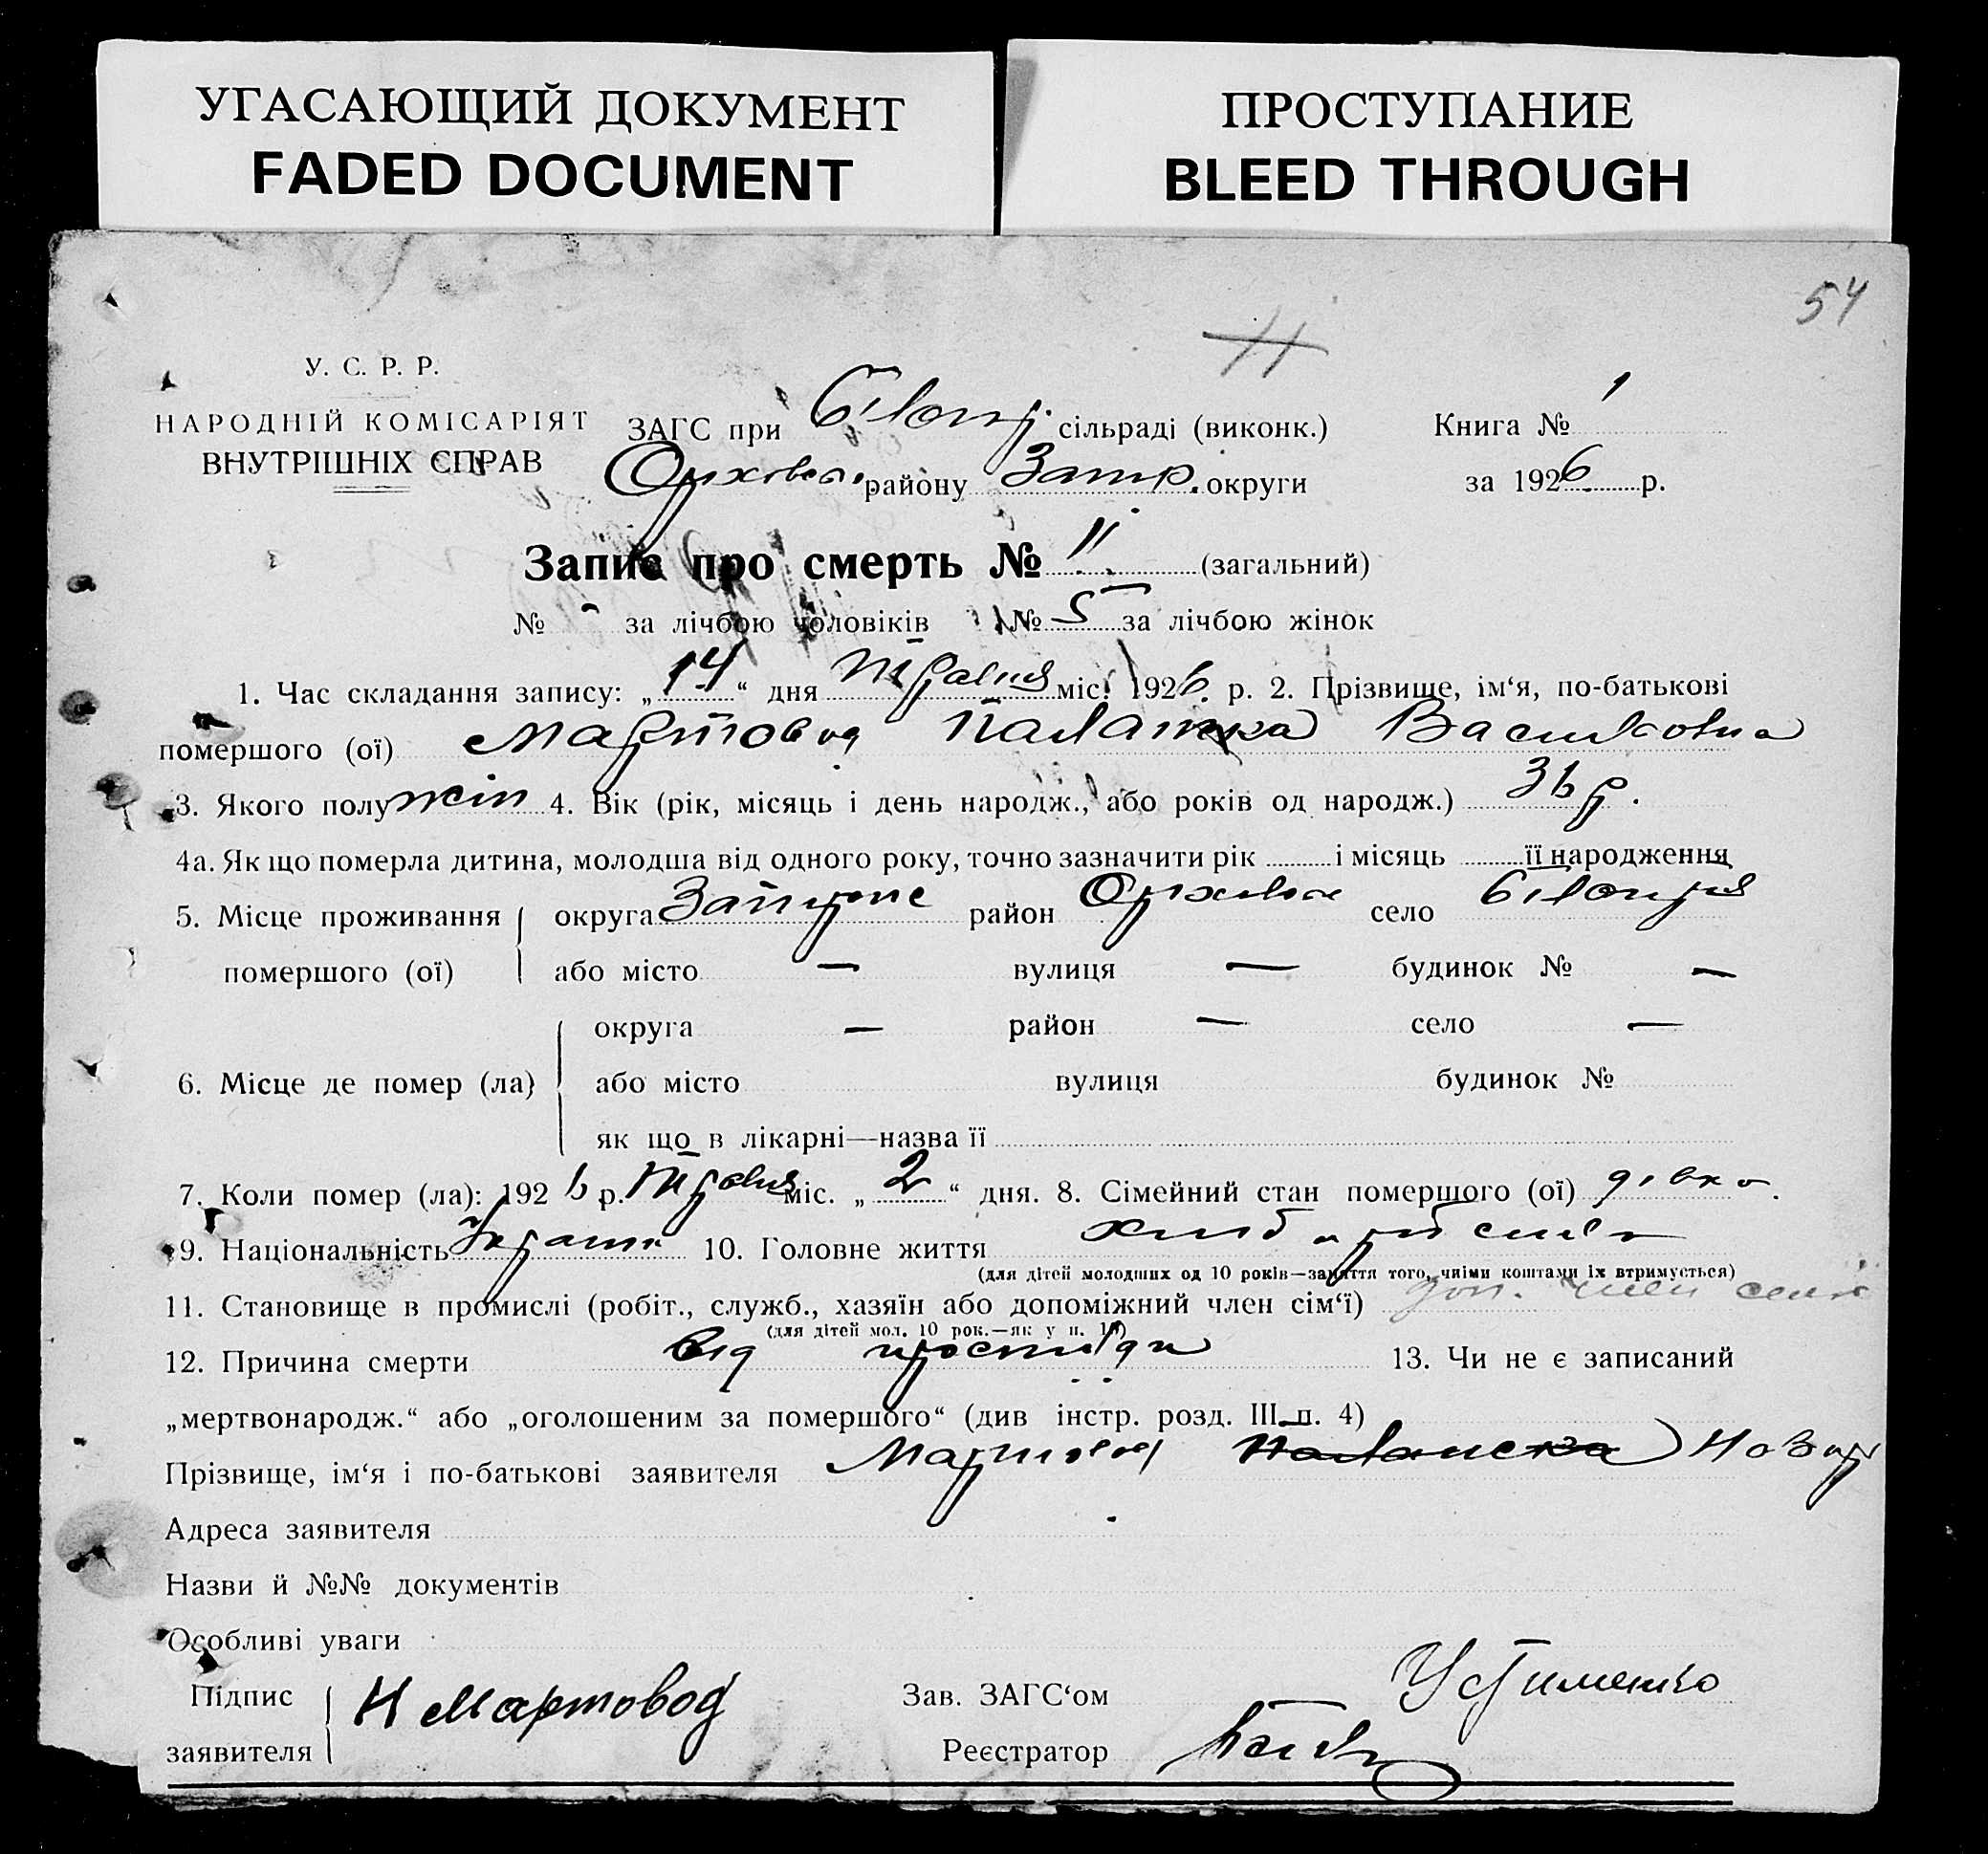 УГАСАЮЩИЙ ДОКУМЕНТ
FADED DOCUMENT
ПРОСТУПАНИЕ
BLEED THROUGH
54
11
У. С. Р. Р.
НАРОДНІЙ КОМІСАРІЯТ
ВНУТРІШНІХ СПРАВ
ЗАГС при Білоц сільраді (виконк.)
Книга № 1
району Запор. округи
за 1926 р.
Запис про смерть № 11 (загальний)
№ - за лічбою чоловіків № 5 за лічбою жінок
1. Час складання запису: „14“ дня травня міс. 1926 р. 2. Прізвище, ім‘я, по-батькові
помершого (ої) Мартовод Палажка Васильовна
3. Якого полу жін 4. Вік (рік, місяць і день народж., або років од народж.) 36 р.
4а. Як що померла дитина, молодша від одного року, точно зазначити рік і місяць її народження
5. Місце проживання округа район село
помершого (ої) або місто — вулиця — будинок № —
округа — район — село —
6. Місце де помер (ла) або місто вулиця будинок №
як що в лікарні—назва її
7. Коли помер (ла): 1926 р. травня міс. „2“ дня. 8. Сімейний стан помершого (ої) дівка.
9. Національність Україн 10. Головне життя хліборобство
(для дітей молодших од 10 років—заняття того, чиїми коштами їх втримується)
11. Становище в промислі (робіт., служб., хазяїн або допоміжний член сім‘ї) доп. член сем'ї
(для дітей мол. 10 рок.—як у п. 10)
12. Причина смерти від простуди 13. Чи не є записаний
„мертвонародж.“ або „оголошеним за помершого“ (див інстр. розд. III п. 4)
Прізвище, ім‘я і по-батькові заявителя Мартовод
Адреса заявителя
Назви й №№ документів
Особливі уваги
Підпис
заявителя
Н Мартовод
Зав. ЗАГС‘ом Устименко
Реєстратор